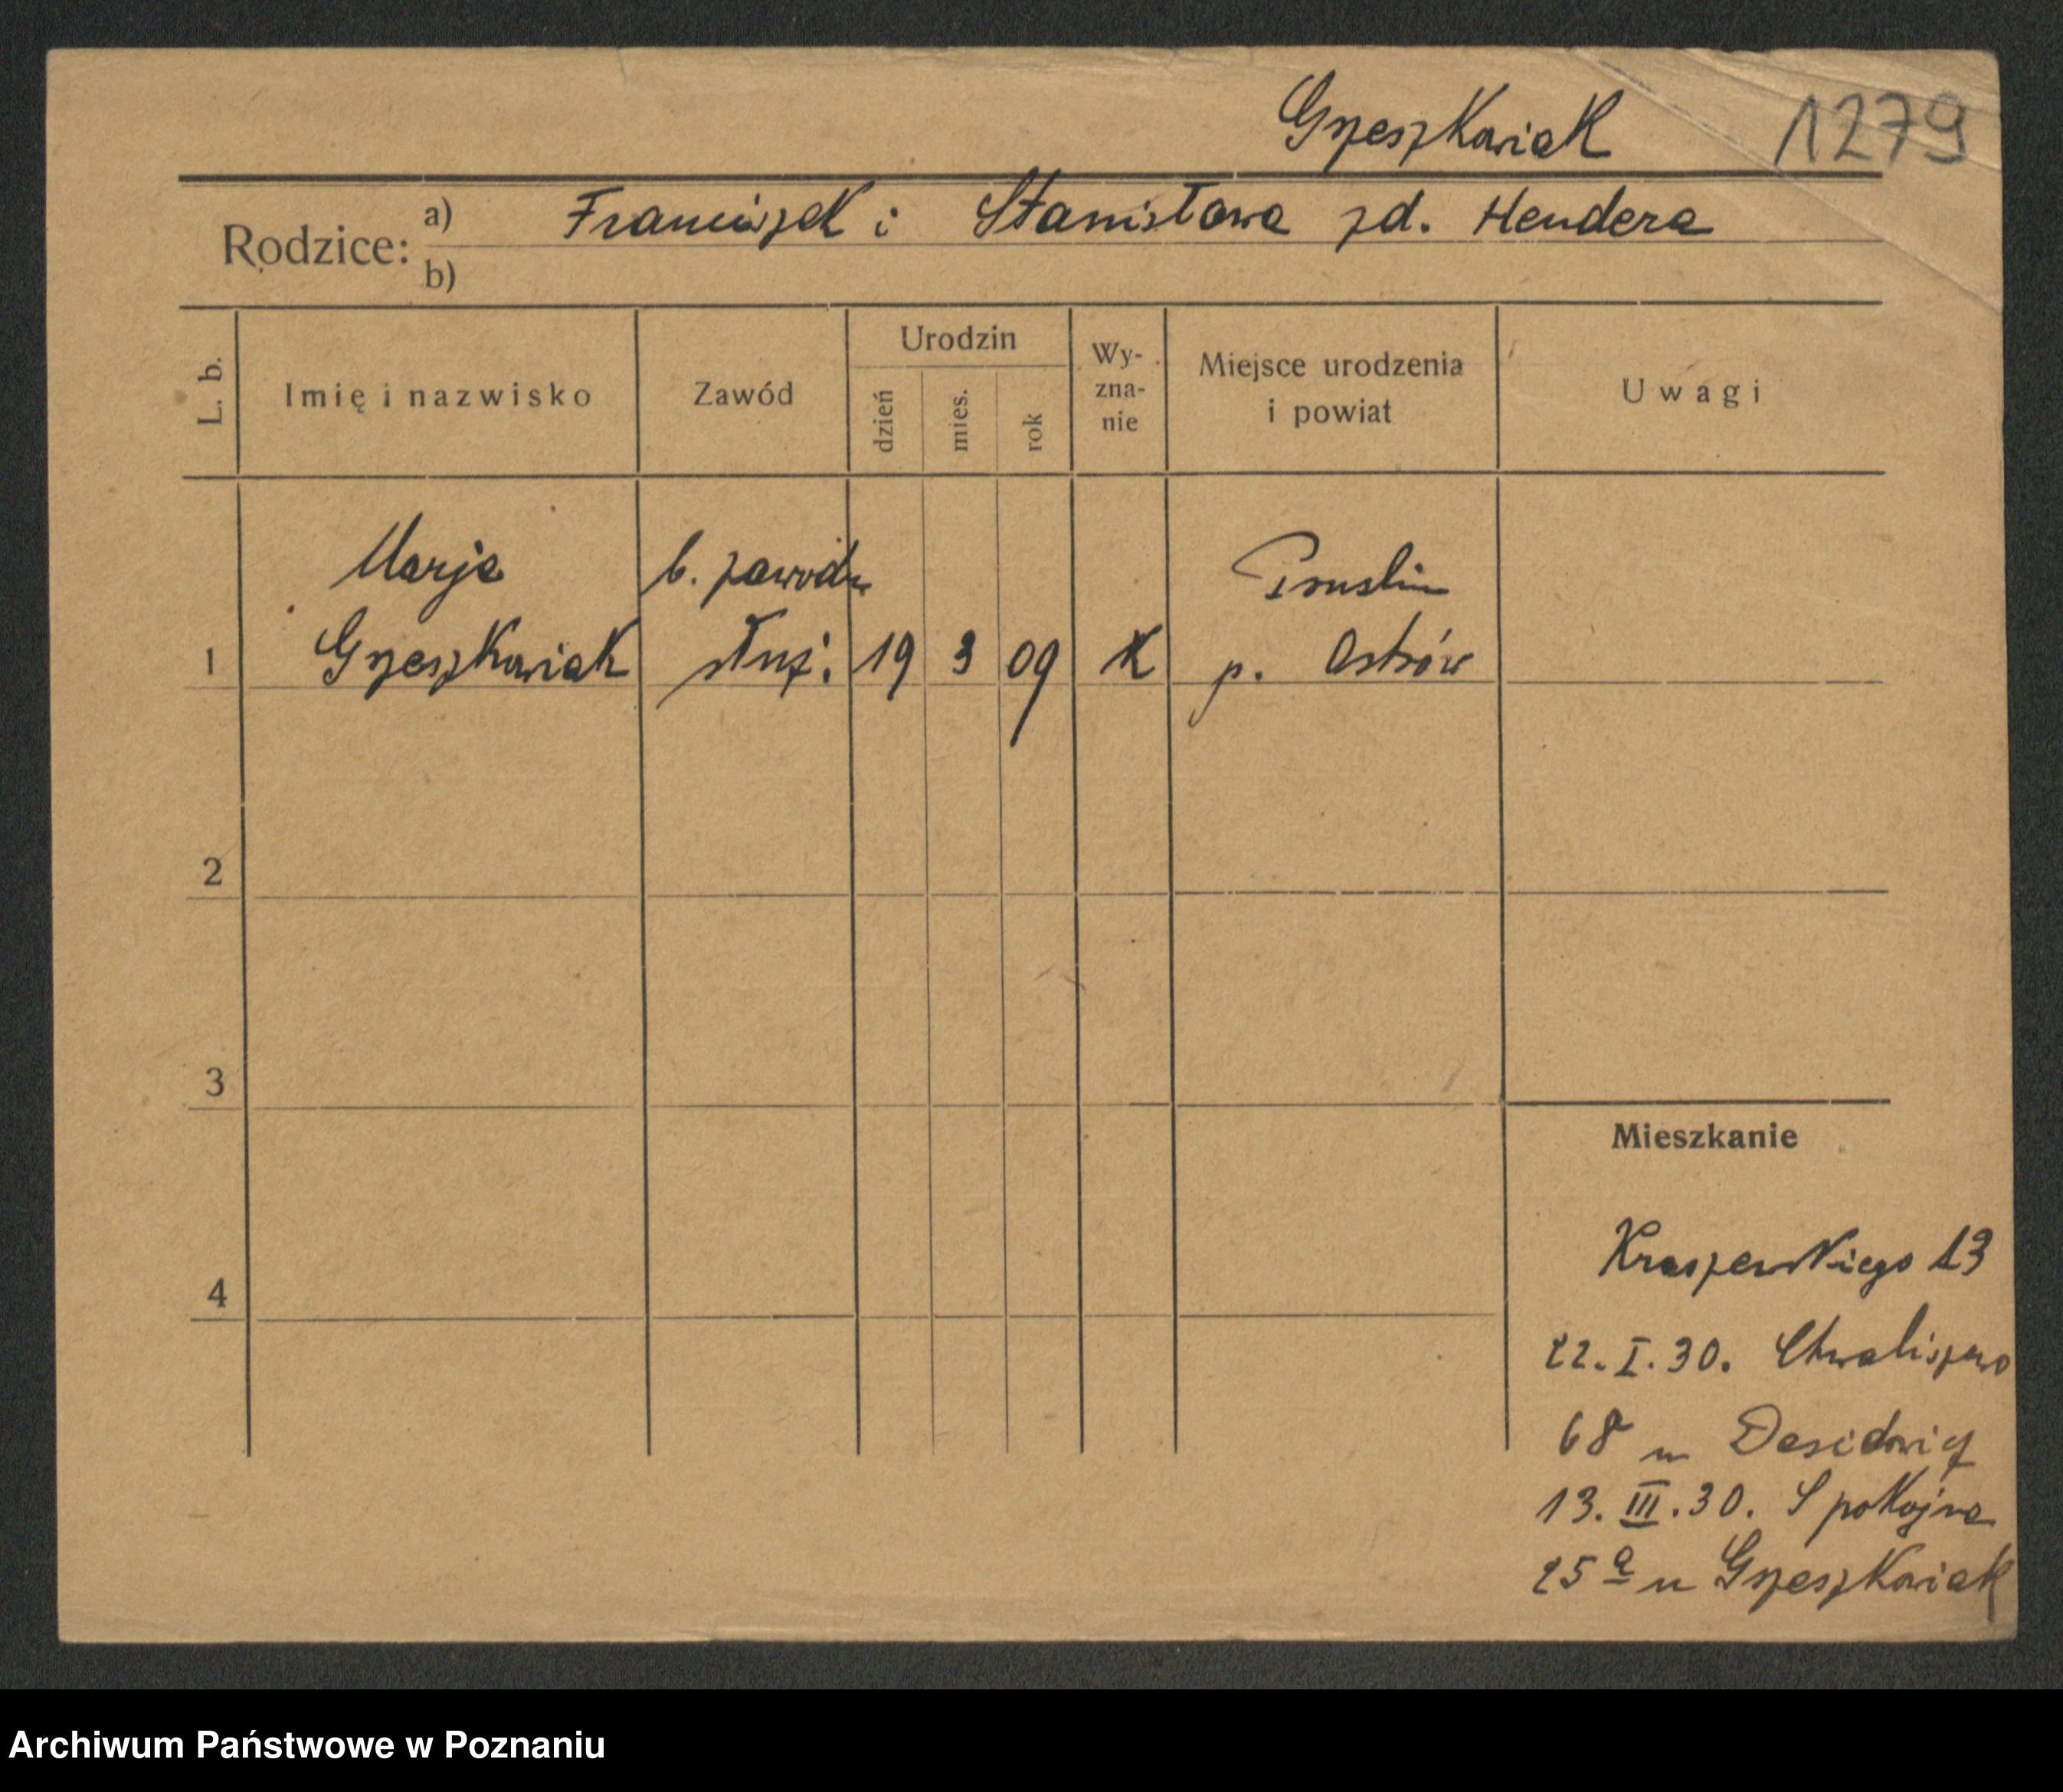 Grzeszkowiak 1279
Rodzice: a) Franciszek i Stanisława zd. Hendera
b)
L. b. Imię i nazwisko Zawód Urodzin dzień mies. rok Wyznanie Miejsce urodzenia i powiat Uwagi
Marja b. zawodu Pruślin
1 Grzeszkowiak służ. 19 3 09 K p. Ostrów
2
3
Mieszkanie
4 Kraszewskiego 13
22. I. 30. Chwaliszewo
68 u
13. III. 30. Spokojna
25a u Grzeszkowiak
Archiwum Państwowe w Poznaniu